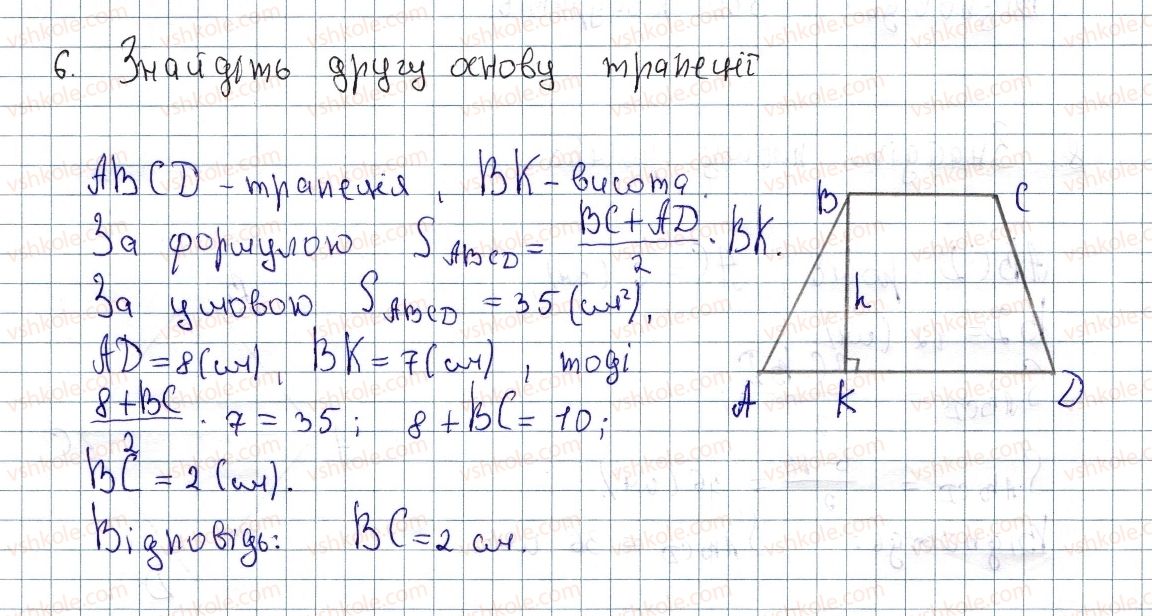 6. Знайдіть другу основу трапеції
ABCD - трапеція, BK - висота.
За формулою S_ABCD = (BC + AD)/2 · BK.
За умовою S_ABCD = 35 (см²),
AD = 8 (см), BK = 7 (см), тоді
(8 + BC)/2 · 7 = 35; 8 + BC = 10;
BC = 2 (см).
Відповідь: BC = 2 см.
B C
h
A K D